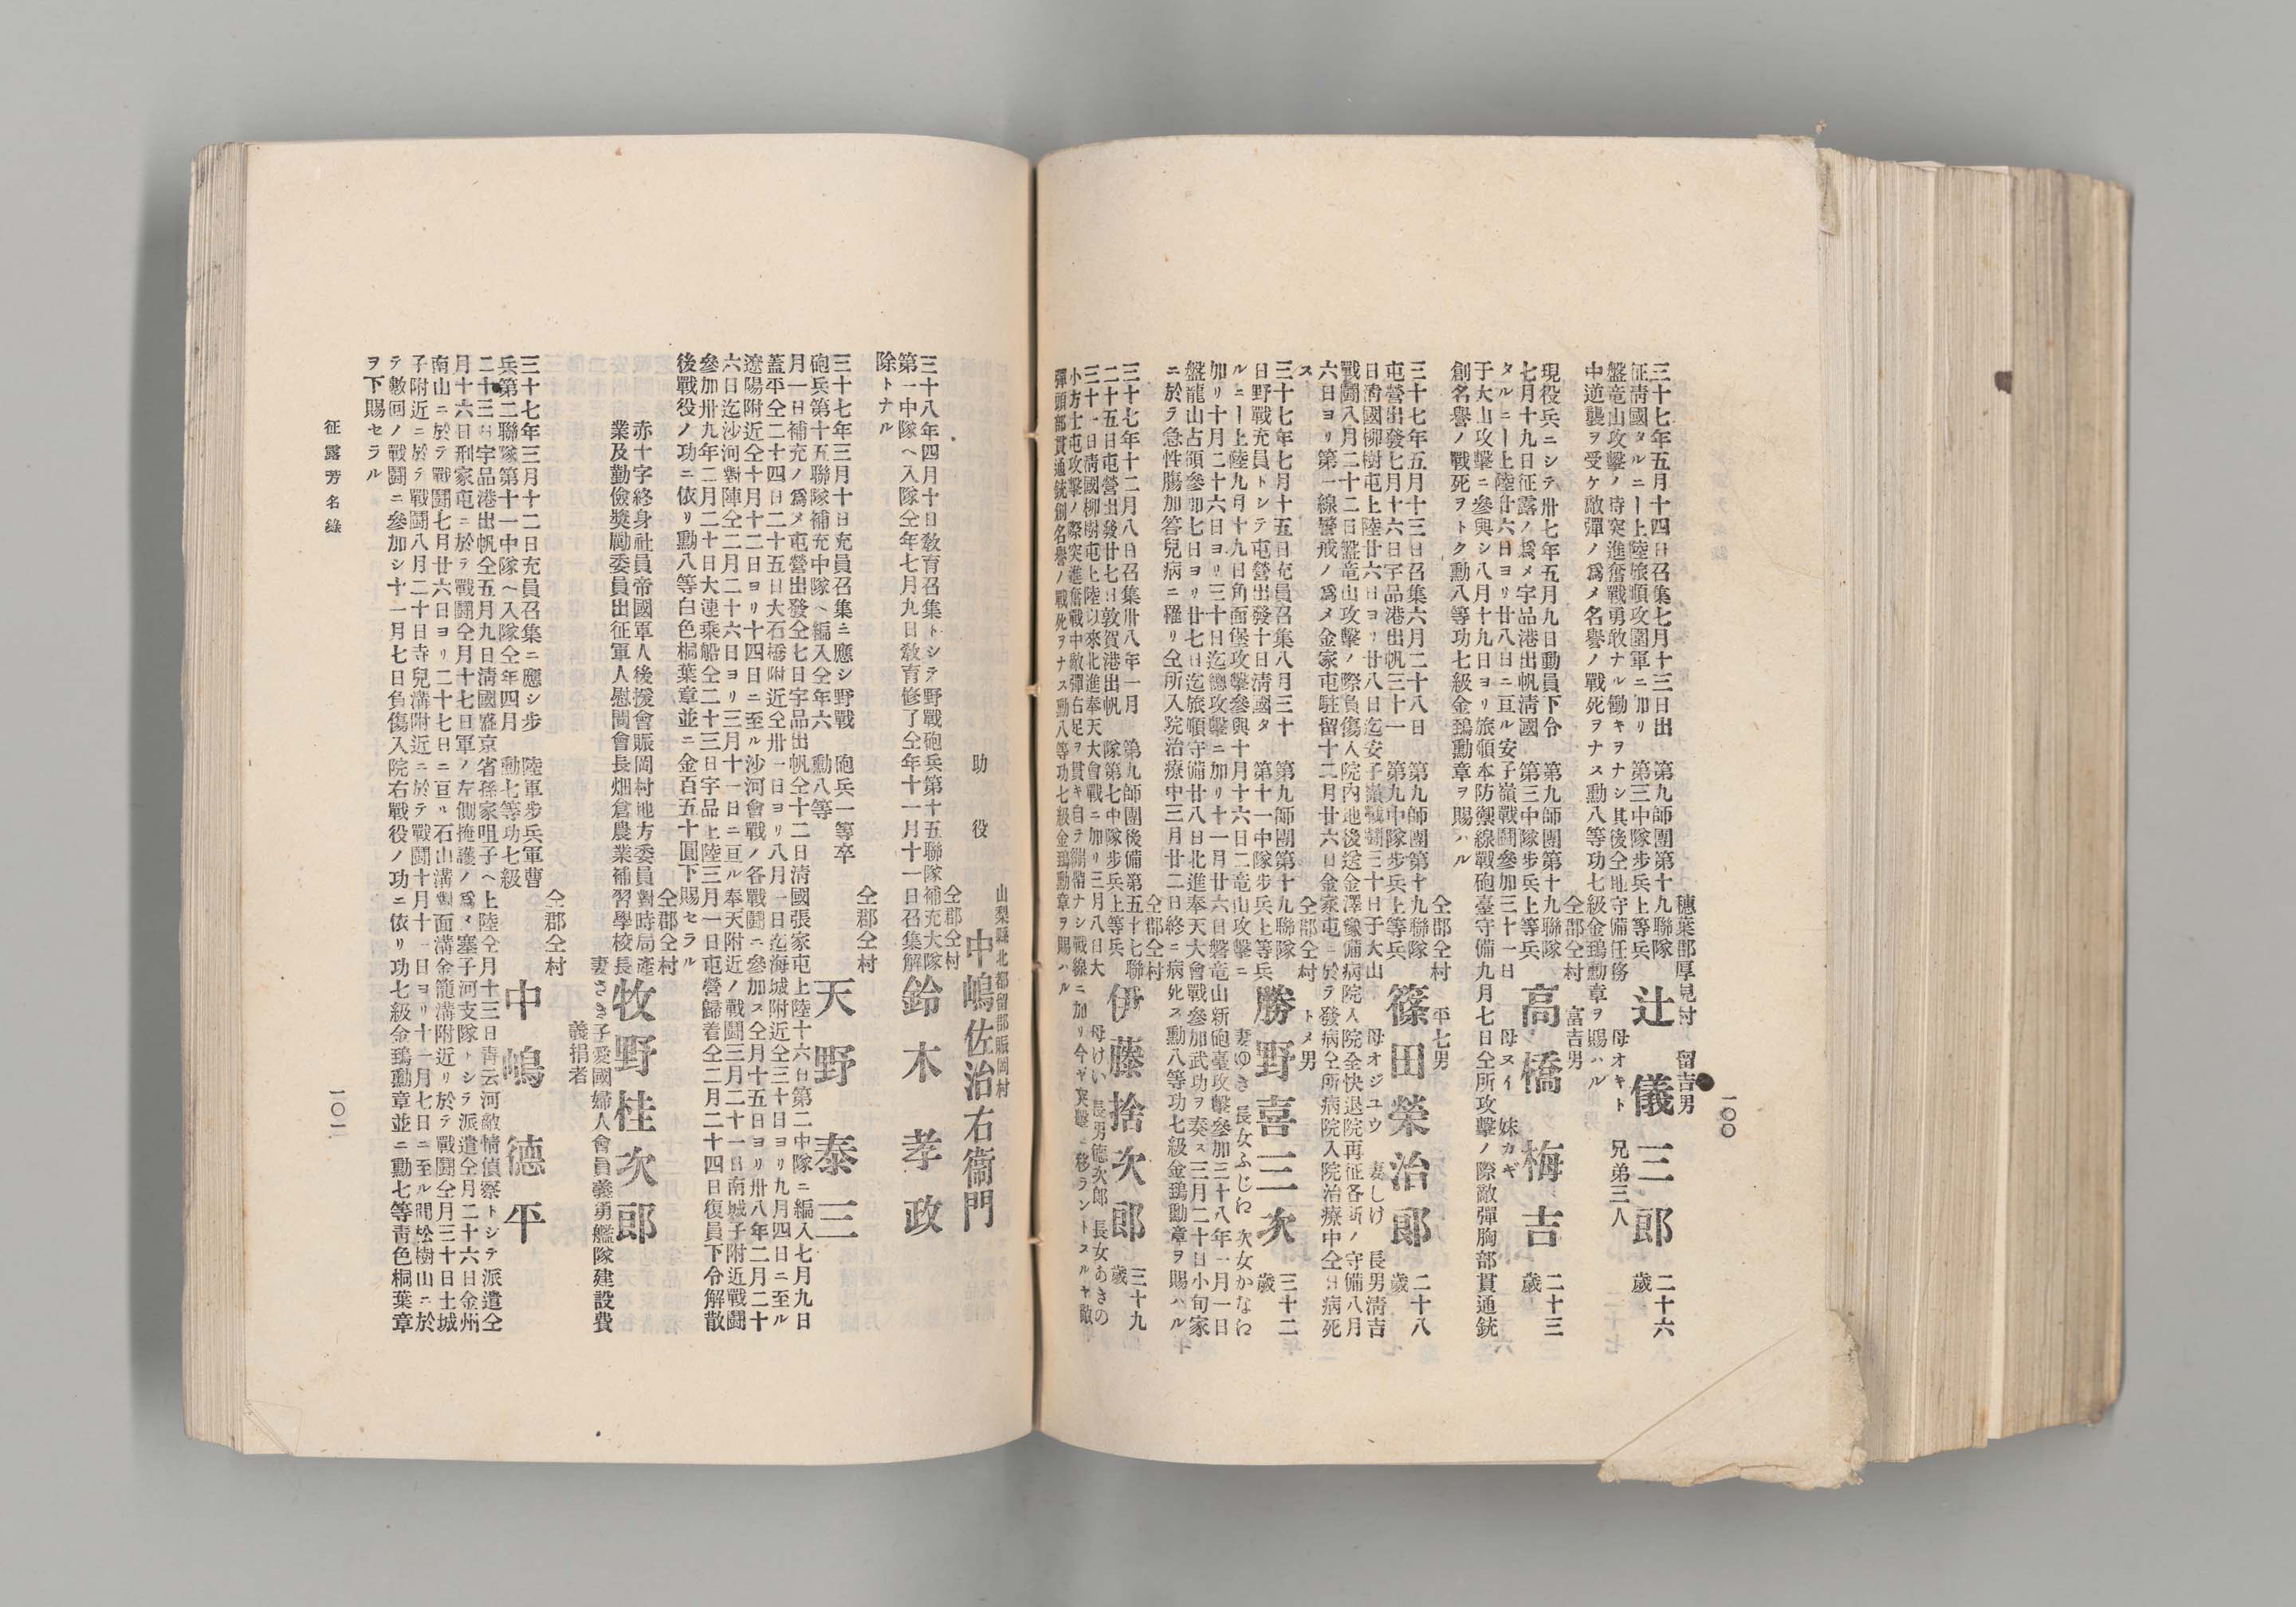 一〇〇
穗葉郡厚見村　留吉男
第九師團第十九聯隊
第三中隊步兵上等兵
辻儀三郎
二十六歲
母オキト　兄弟三人
三十七年五月十四日召集七月十三日出
征淸國タルニー上陸旅順攻圍軍ニ加リ
盤竜山攻擊ノ時突進奮戰勇敢ナル働キヲナシ其後仝地守備任務
中逆襲ヲ受ケ敵彈ノ爲メ名譽ノ戰死ヲナス勳八等功七級金鵄勳章ヲ賜ハル
仝郡仝村　富吉男
第九師團第十九聯隊
第三中隊步兵上等兵
高橋梅吉
二十三歲
母ヌイ　妹カギ
現役兵ニシテ卅七年五月九日動員下令
七月十九日征露ノ爲メ宇品港出帆淸國
タルニー上陸廿六日ヨリ廿八日ニ亘ル安子嶺戰鬪參加三十一日
于大山攻擊ニ參與シ八月十九日ヨリ旅順本防禦線戰砲臺守備九月七日仝所攻擊ノ際敵彈胸部貫通銃
創名譽ノ戰死ヲトク勳八等功七級金鵄勳章ヲ賜ハル
仝郡仝村　平七男
第九師團第十九聯隊
第九中隊步兵上等兵
篠田榮治郎
二十八歲
母オジユウ　妻しけ　長男淸吉
三十七年五月十三日召集六月二十八日
屯營出發七月十六日宇品港出帆三十一
日淸國柳樹屯上陸廿六日ヨリ廿八日迄安子嶺戰鬪三十日于大山
戰鬪八月二十二日盤竜山攻擊ノ際負傷入院內地後送金澤豫備病院入院全快退院再征各所ノ守備八月
六日ヨリ第一線警戒ノ爲メ金家屯駐留十二月廿六日金家屯ニ於テ發病仝所病院入院治療中仝日病死
ス
仝郡仝村　トメ男
第九師團第十九聯隊
第十一中隊步兵上等兵
勝野喜三次
三十二歲
妻ゆき　長女ふじゑ　次女かなゑ
三十七年七月十五日充員召集八月三十
日野戰充員トシテ屯營出發十日淸國タ
ルニー上陸九月十九日角面堡攻擊參與十月十六日二竜山攻擊ニ
加リ十月二十六日ヨリ三十日迄總攻擊ニ加リ十一月廿六日磐竜山新砲臺攻擊參加三十八年一月一日
盤龍山占領參加七日ヨリ廿七日迄旅順守備廿八日北進奉天大會戰參加武功ヲ奏ス三月二十日小旬家
ニ於テ急性膓加答兒病ニ罹リ仝所入院治療中三月廿二日終ニ病死ス勳八等功七級金鵄勳章ヲ賜ハル
仝郡仝村
第九師團後備第五十七聯
隊第七中隊步兵上等兵
伊藤捨次郎
三十九歲
母けい　長男德次郎　長女あきの
三十七年十二月八日召集卅八年一月
二十五日屯營出發廿七日敦賀港出帆
三十一日淸國柳樹屯上陸以來北進奉天大會戰ニ加リ三月八日大
小方士屯攻擊ノ際突進奮戰中敵彈右足ヲ貫キ自ラ繃帶ナシ戰線ニ加リ今ヤ突擊ニ移ラントスルヤ敵
彈頭部貫通銃創名譽ノ戰死ヲナス勳八等功七級金鵄勳章ヲ賜ハル
山梨縣北都留郡賑岡村
助役　中嶋佐治右衞門
仝郡仝村
鈴木孝政
三十八年四月十日敎育召集トシテ野戰砲兵第十五聯隊補充大隊
第一中隊ヘ入隊仝年七月九日敎育修了仝年十一月十一日召集解
除トナル
仝郡仝村
砲兵一等卒
勳八等
天野泰三
三十七年三月十日充員召集ニ應シ野戰
砲兵第十五聯隊補充中隊ヘ編入仝年六
月一日補充ノ爲メ屯營出發仝七日宇品出帆仝十二日淸國張家屯上陸十六日第二中隊ニ編入七月九日
蓋平仝二十四日二十五日大石橋附近仝卅一日ヨリ八月一日迄海城附近仝三十日ヨリ九月四日ニ至ル
遼陽附近仝十月十二日ヨリ十四日ニ至ル沙河會戰ノ各戰鬪ニ參加ス仝月十五日ヨリ卅八年二月二十
六日迄沙河對陣仝二月二十六日ヨリ三月十一日ニ亘ル奉天附近ノ戰鬪三月二十一日南城子附近戰鬪
參加卅九年二月二十日大連乘船仝二十三日宇品上陸三月一日屯營歸着仝二月二十四日復員下令解散
後戰役ノ功ニ依リ勳八等白色桐葉章並ニ金百五十圓下賜セラル
仝郡仝村
赤十字終身社員帝國軍人後援會賑岡村地方委員對時局產
業及勤儉奬勵委員出征軍人慰問會長畑倉農業補習學校長
牧野桂次郎
妻さき子愛國婦人會員義勇艦隊建設費
義捐者
仝郡仝村
陸軍步兵軍曹
勳七等功七級
中嶋德平
三十七年三月十二日充員召集ニ應シ步
兵第二聯隊第十一中隊ヘ入隊仝年四月
二十三日宇品港出帆仝五月九日淸國盛京省孫家咀子ヘ上陸仝月十三日靑云河敵情偵察トシテ派遣仝
月十六日刑家屯ニ於テ戰鬪仝月十七日軍ノ左側掩護ノ爲メ塞子河支隊トシテ派遣仝月二十六日金州
南山ニ於テ戰鬪七月廿六日ヨリ二十七日ニ亘ル石山溝對面溝金龍溝附近リ於テ戰鬪仝月三十日土城
子附近ニ於テ戰鬪八月二十日寺兒溝附近ニ於テ戰鬪十月十一日ヨリ十一月七日ニ至ル間松樹山ニ於
テ數回ノ戰鬪ニ參加シ十一月七日負傷入院右戰役ノ功ニ依リ功七級金鵄勳章並ニ勳七等靑色桐葉章
ヲ下賜セラル
征露芳名錄
一〇一